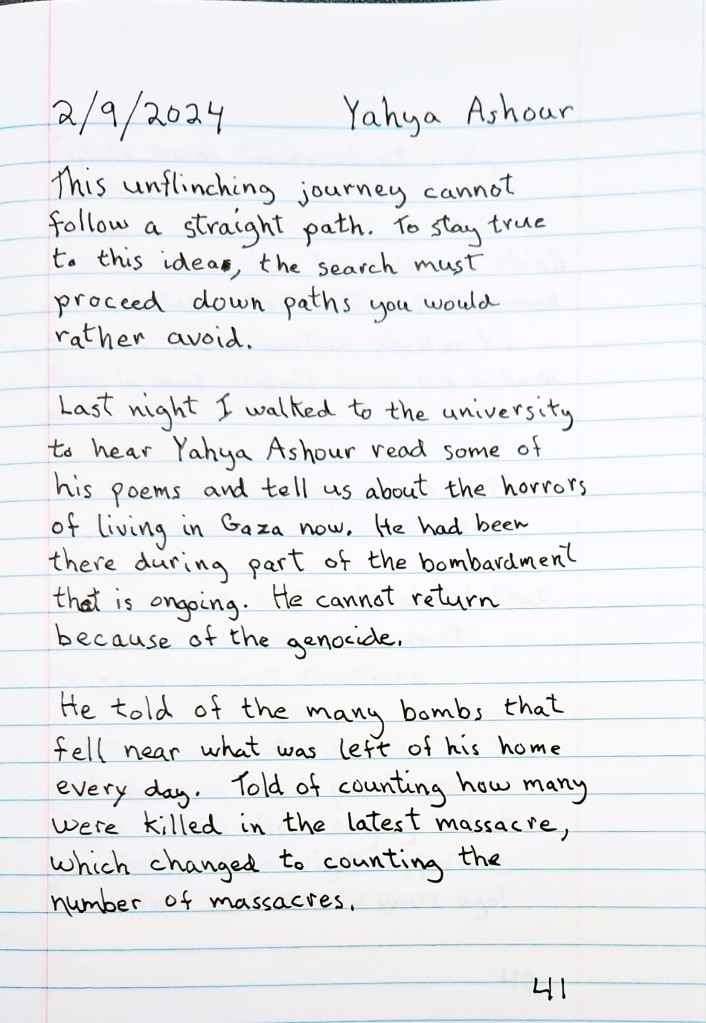 2/9/2024 Yahya Ashour
This unflinching journey cannot
follow a straight path. To stay true
to this idea, the search must
proceed down paths you would
rather avoid.
Last night I walked to the university
to hear Yahya Ashour read some of
his poems and tell us about the horrors
of living in Gaza now. He had been
there during part of the bombardment
that is ongoing. He cannot return
because of the genocide.
He told of the many bombs that
fell near what was left of his home
every day. Told of counting how many
were killed in the latest massacre,
which changed to counting the
number of massacres.
41